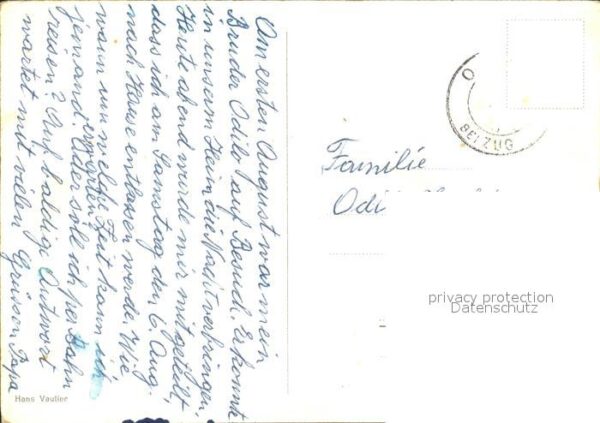 Am ersten August war mein
Bruder Odilo auf Besuch. Er konnte
in unserm Heim die Nacht verbringen.
Heute abend wurde mir mitgeteilt,
dass ich am Samstag den, 6. Aug.
nach Hause entlassen werde. Wie
wann um welche Zeit kann ich
jemand erwarten? Oder soll ich per Bahn
reisen? Auf baldige Antwort
wartet mit vielen Grüssen, Papa
Hans Vautier
BEI ZUG
Familie
Odi
privacy protection
Datenschutz